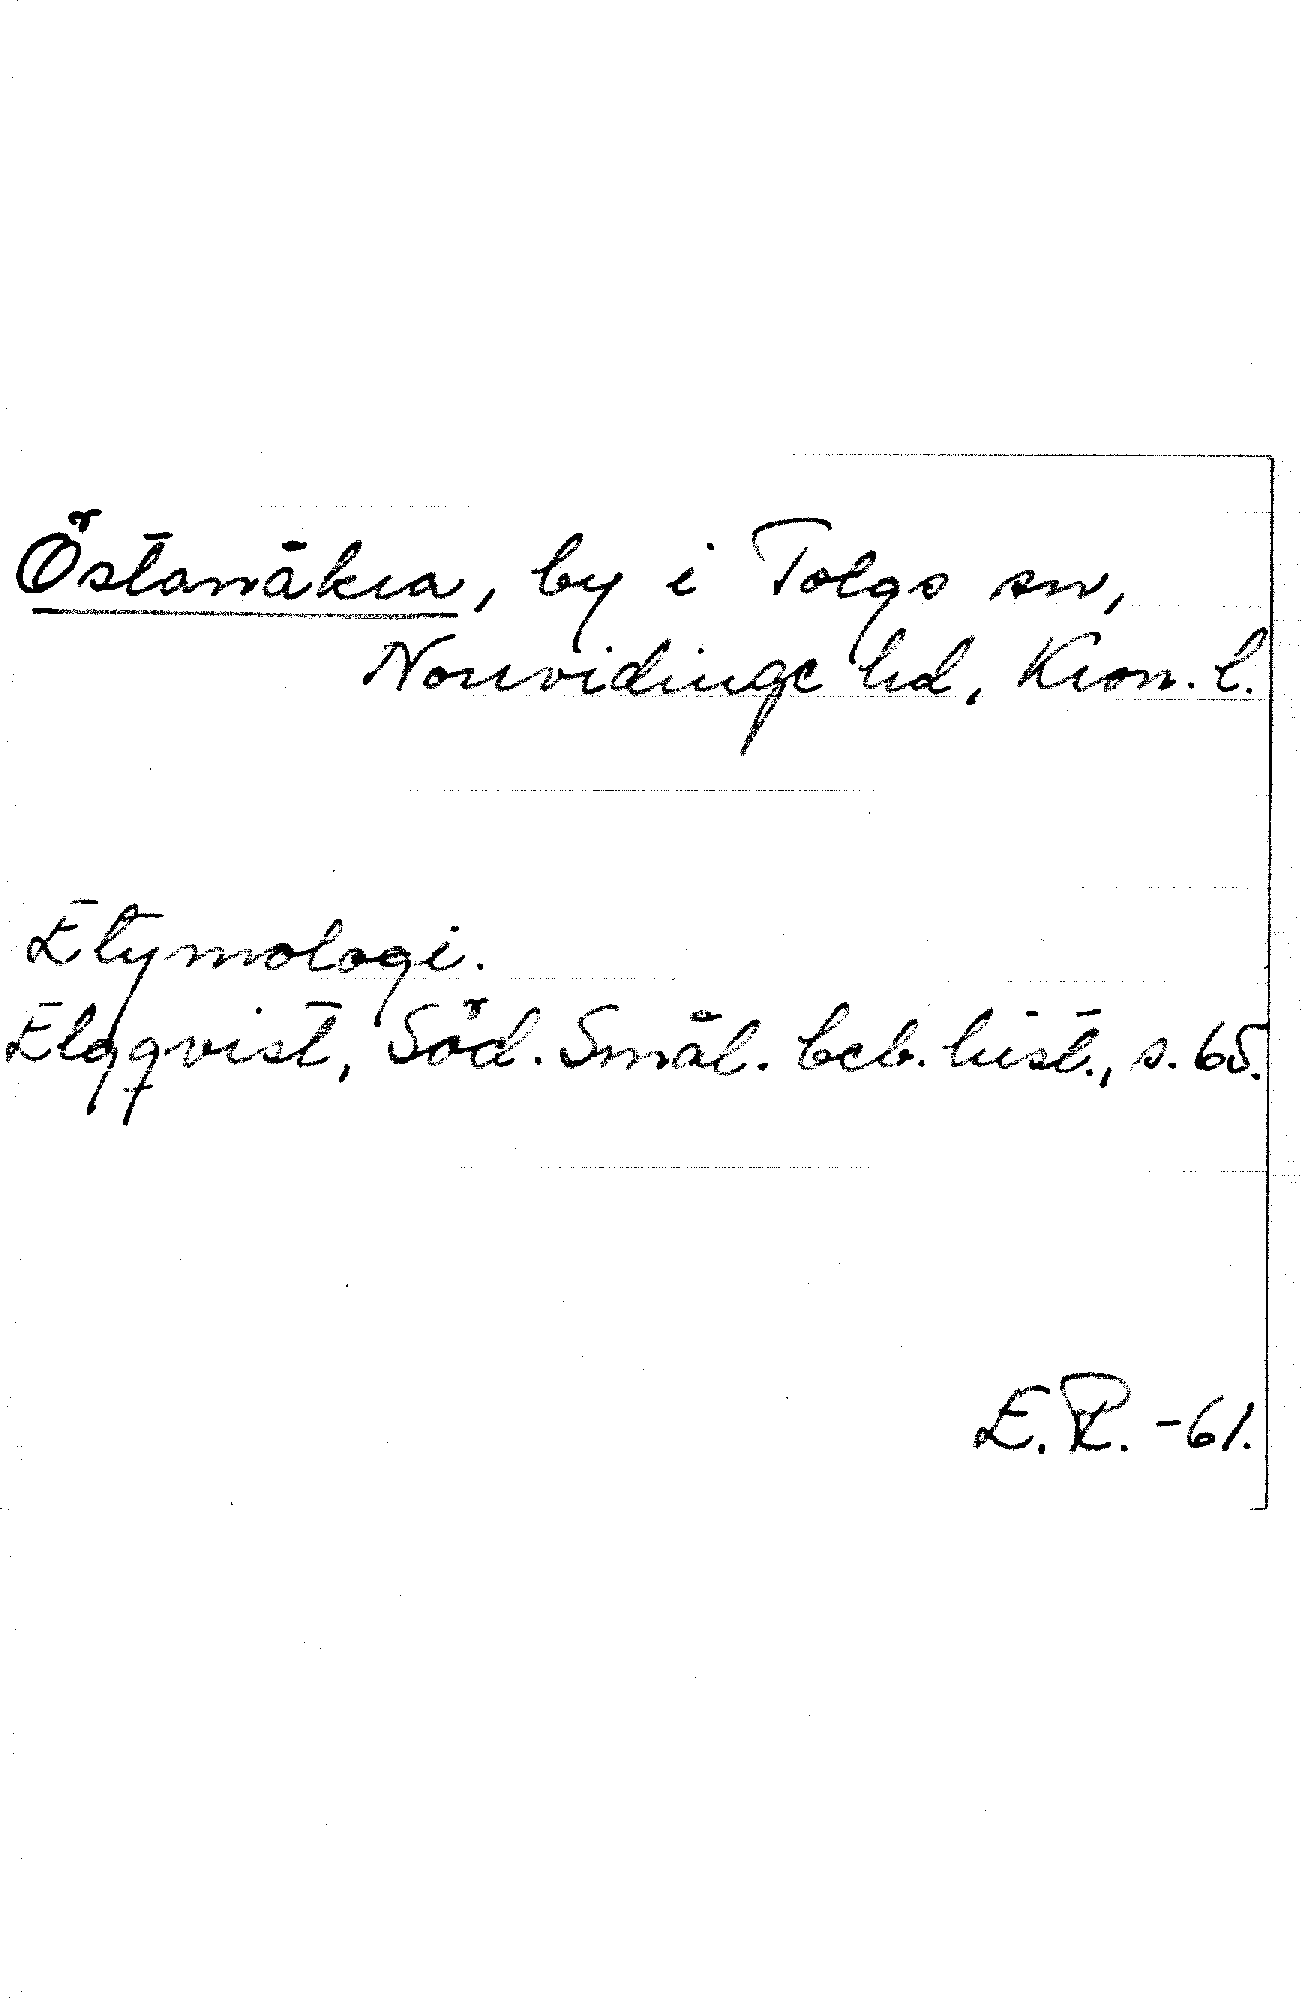 Östanåkra, by i Tolgs sn,
Norrvidinge hd, Kron. l.
Etymologi.
Elgqvist, Söd. Smål. beb. hist., s. 65.
E. R. -61.